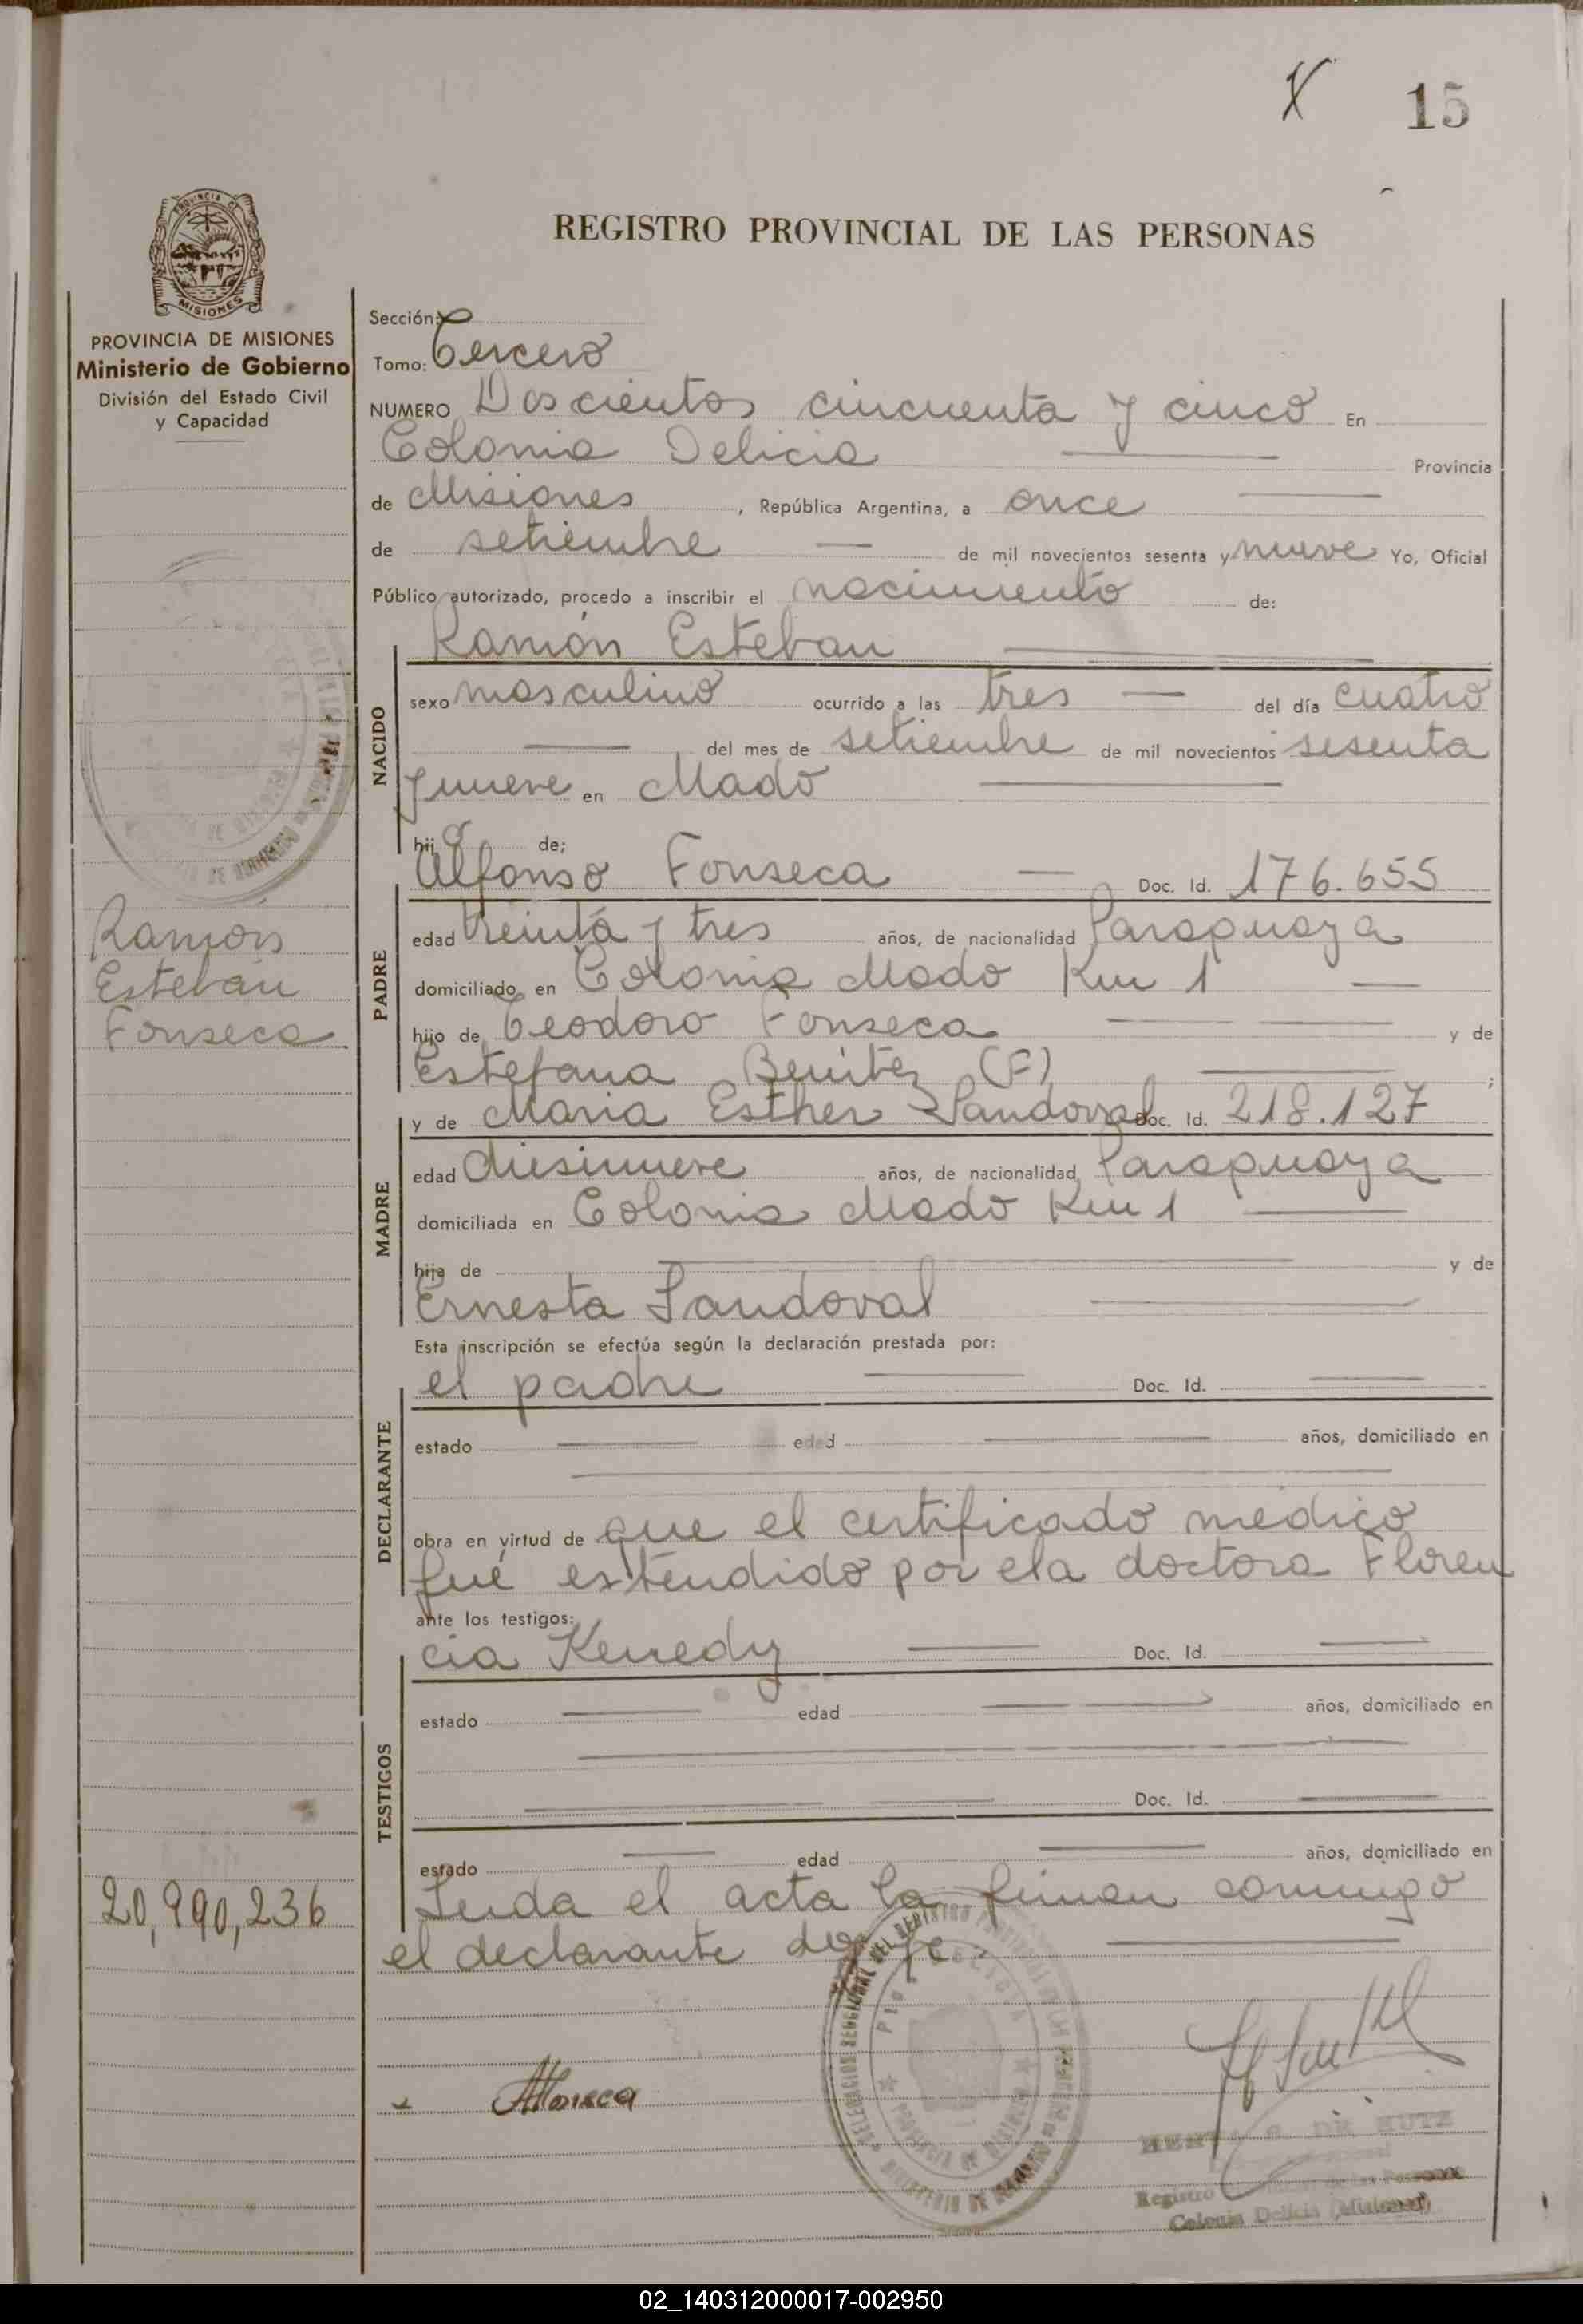 X 15
REGISTRO PROVINCIAL DE LAS PERSONAS
PROVINCIA DE
MISIONES
PROVINCIA DE MISIONES
Ministerio de Gobierno
División del Estado Civil
y Capacidad
Sección:
Tomo: Tercero
NUMERO Doscientos cincuenta y cinco En
Colonia Delicia Provincia
de Misiones, República Argentina, a once
de setiembre de mil novecientos sesenta y nueve Yo, Oficial
Público autorizado, procedo a inscribir el nacimiento de:
Ramón Esteban
NACIDO
sexo masculino ocurrido a las tres del día cuatro
del mes de setiembre de mil novecientos sesenta
y nueve en Mado
hijo de;
Alfonso Fonseca Doc. Id. 176.655
PADRE
edad treinta y tres años, de nacionalidad Paraguaya
domiciliado en Colonia Mado Km 1
hijo de Teodoro Fonseca y de
Estefana Benitez (F) ;
y de Maria Esther Sandoval Doc. Id. 218.127
MADRE
edad diesinueve años, de nacionalidad Paraguaya
domiciliada en Colonia Mado Km 1
hija de y de
Ernesta Sandoval
Esta inscripción se efectúa según la declaración prestada por:
el padre Doc. Id.
DECLARANTE
estado edad años, domiciliado en
obra en virtud de que el certificado médico
fué estendido por ela doctora Floren
ante los testigos:
cia Kenedy Doc. Id.
TESTIGOS
estado edad años, domiciliado en
Doc. Id.
estado edad años, domiciliado en
Leida el acta la firman conmigo
el declarante doy fe.
Ramón
Esteban
Fonseca
20,990,236
AFonseca
DELEGACION SECCIONAL DEL REGISTRO
MINISTERIO DE GOBIERNO
PROVINCIA DE MISIONES
DE RUTZ
Registro de las Personas
Colonia Delicia (Misiones)
02_140312000017-002950